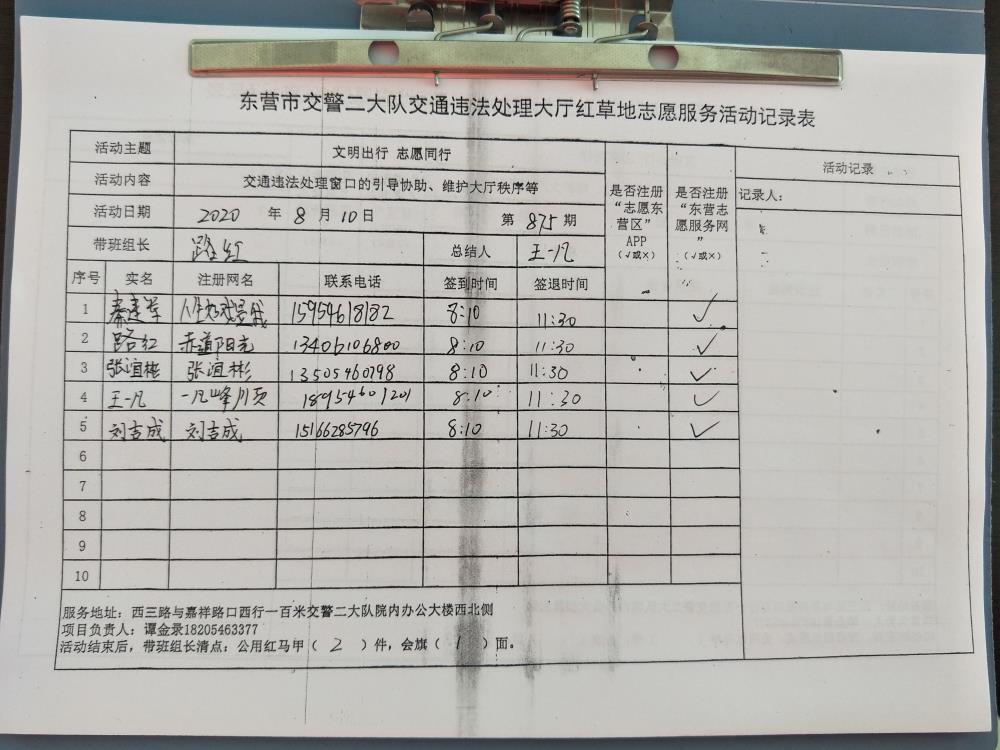 东营市交警二大队交通违法处理大厅红草地志愿服务活动记录表
活动主题 文明出行 志愿同行 是否注册“志愿东营区”APP（√或×） 是否注册“东营志愿服务网”（√或×） 活动记录
活动内容 交通违法处理窗口的引导协助、维护大厅秩序等 记录人：
活动日期 2020 年 8 月 10 日 第 875 期
带班组长 路红 总结人 王一凡
序号 实名 注册网名 联系电话 签到时间 签退时间
1 秦建军 15954618182 8:10 11:30 √
2 路红 赤道阳光 13406106800 8:10 11:30 √
3 张谊彬 张谊彬 13505460798 8:10 11:30 √
4 王一凡 一凡峰川页 18954601201 8:10 11:30 √
5 刘吉成 刘吉成 15166285796 8:10 11:30 √
6
7
8
9
10
服务地址：西三路与嘉祥路口西行一百米交警二大队院内办公大楼西北侧
项目负责人：谭金录18205463377
活动结束后，带班组长清点：公用红马甲（ 2 ）件，会旗（ 1 ）面。